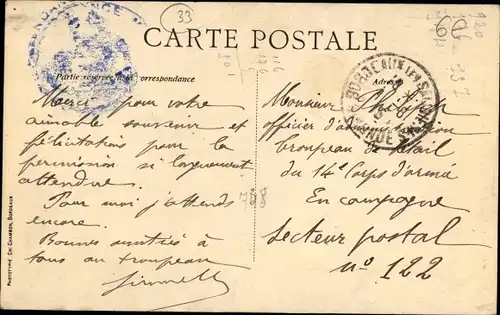 33
CARTE POSTALE
Partie réservée à la correspondance
Adresse
Merci pour votre
aimable souvenir et
félicitations pour la
permission si longuement
attendue.
Pour moi j'attends
encore.
Bonnes amitiés à
tous au troupeau
Monsieur
officier d'administration
troupeau de bétail
du 14e Corps d'armée
En campagne
Secteur postal
n° 122
788
PHOTOTYPIE CH. CHAMBON, BORDEAUX